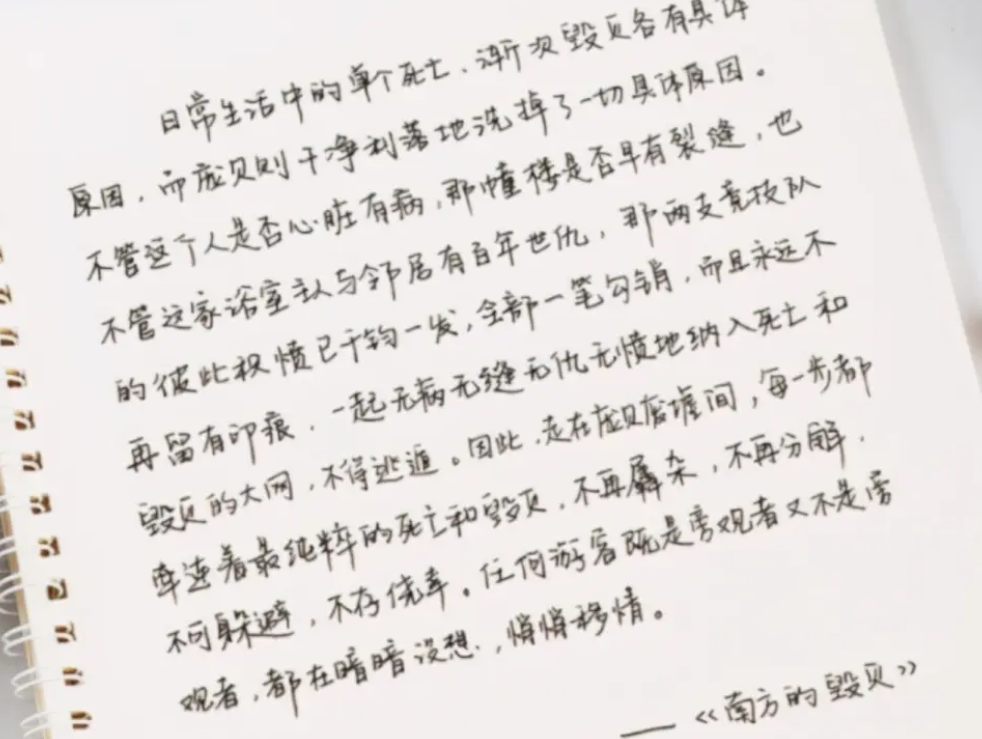 日常生活中的单个死亡、渐次毁灭各有具体
原因，而庞贝则干净利落地洗掉了一切具体原因。
不管这个人是否心脏有病，那幢楼是否早有裂缝，也
不管这家浴室主人与邻居有百年世仇，那两支竞技队
的彼此积愤已千钧一发，全部一笔勾销，而且永远不
再留有印痕，一起无病无缝无仇无愤地纳入死亡和
毁灭的大网，不得逃遁。因此，走在庞贝废墟间，每一步都
牵连着最纯粹的死亡和毁灭，不再羼杂，不再分解，
不可躲避，不存侥幸。任何游客既是旁观者又不是旁
观者，都在暗暗设想，悄悄移情。
——《南方的毁灭》